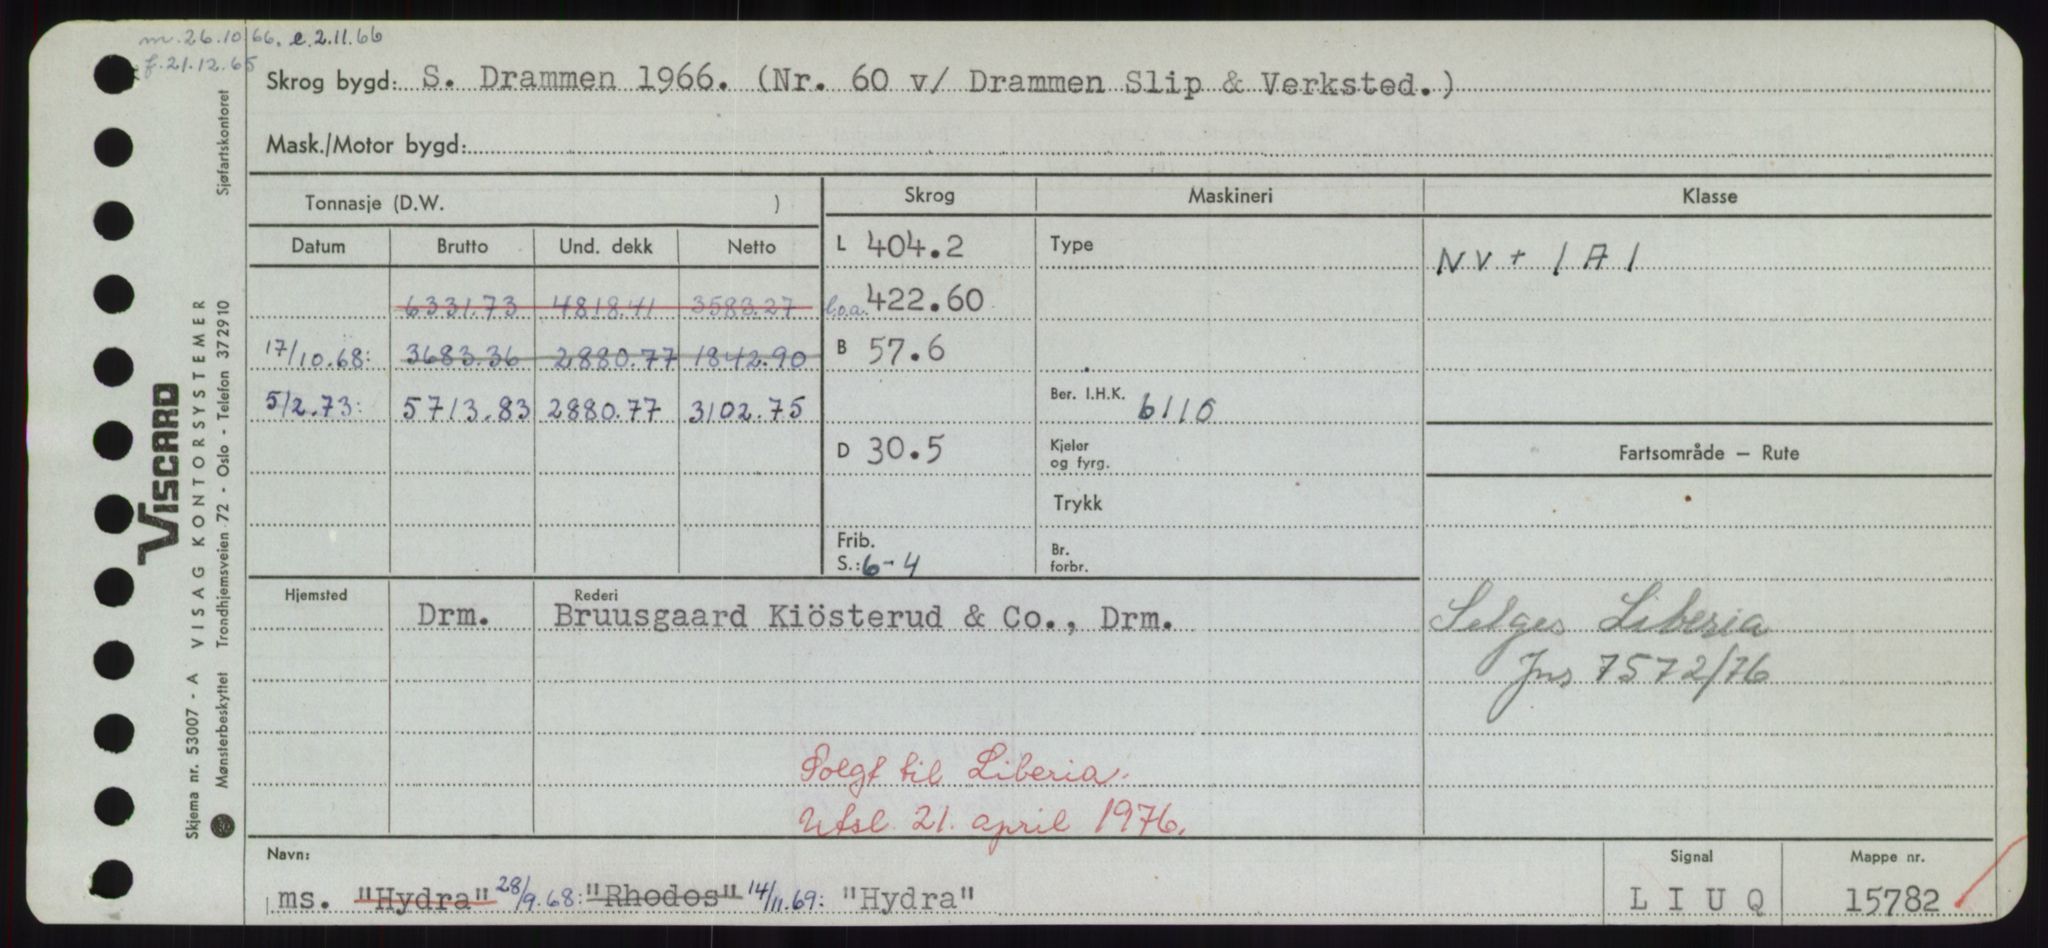 m. 26.10.66. e. 2.11.66
f. 21.12.65
Skrog bygd: S. Drammen 1966. (Nr. 60 v/ Drammen Slip & Verksted.)
Mask./Motor bygd:
Tonnasje (D.W. )
Skrog
Maskineri
Klasse
Datum Brutto Und. dekk Netto
6331.73 4818.41 3583.27
17/10.68: 3683.36 2880.77 1842.90
5/2.73: 5713.83 2880.77 3102.75
L 404.2
l.o.a. 422.60
B 57.6
D 30.5
Frib.
S.: 6-4
Type
Ber. I.H.K. 6110
Kjeler
og fyrg.
Trykk
Br.
forbr.
NV + 1A1
Fartsområde — Rute
Selges Liberia
Jns 7572/76
Hjemsted
Rederi
Drm. Bruusgaard Kiösterud & Co., Drm.
Solgt til Liberia.
Utsl. 21. april 1976.
Navn:
ms. "Hydra" 28/9.68: "Rhodos" 14/11.69: "Hydra"
Signal
L I U Q
Mappe nr.
15782
VISCARD
Skjema nr. 53007 - A VISAG KONTORSYSTEMER
Mønsterbeskyttet Trondhjemsveien 72 - Oslo - Telefon 372910 Sjøfartskontoret